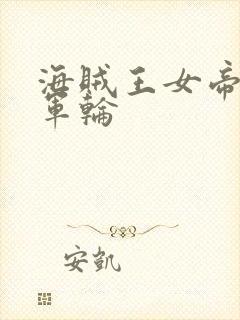 海賊王女帝
軍輪
安凱